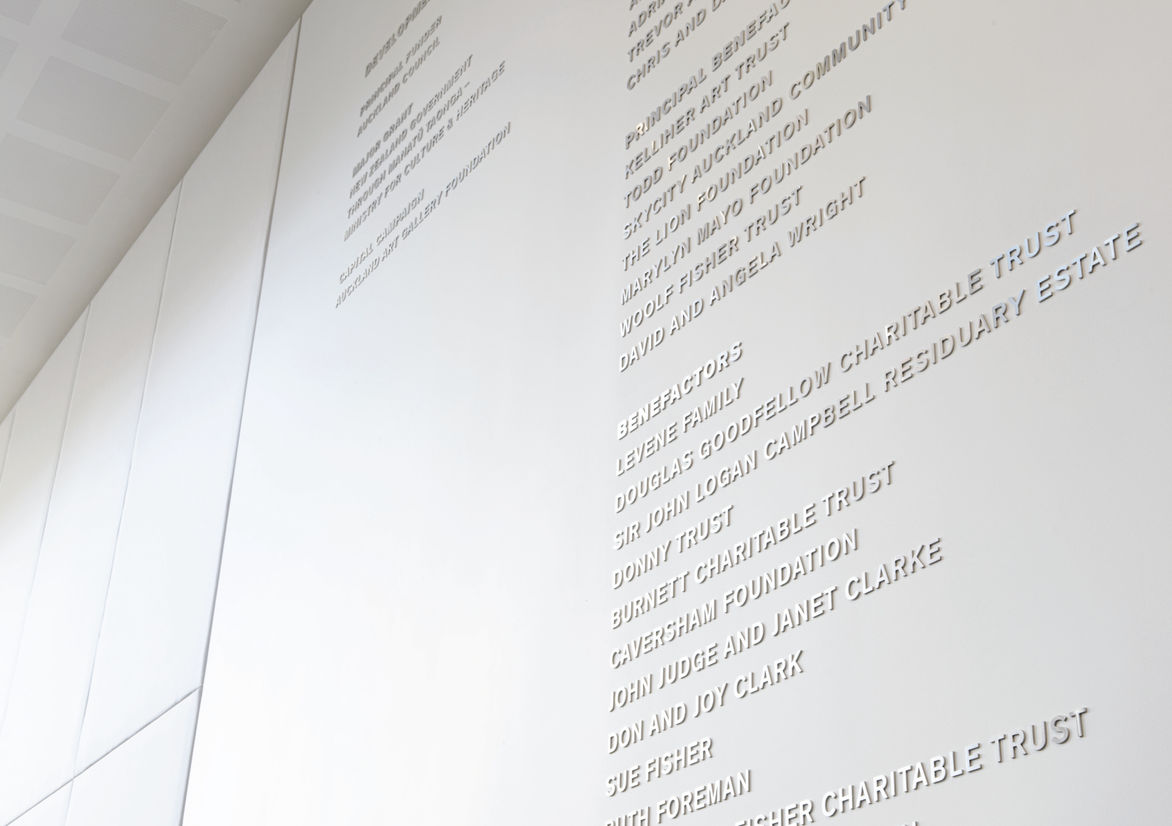 PRINCIPAL FUNDER
AUCKLAND COUNCIL
MAJOR GRANT
NEW ZEALAND GOVERNMENT
THROUGH MANATŪ TAONGA –
MINISTRY FOR CULTURE & HERITAGE
CAPITAL CAMPAIGN
AUCKLAND ART GALLERY FOUNDATION
TREVOR
CHRIS AND
PRINCIPAL
KELLIHER ART TRUST
TODD FOUNDATION
SKYCITY AUCKLAND COMMUNITY
THE LION FOUNDATION
MARYLYN MAYO FOUNDATION
WOOLF FISHER TRUST
DAVID AND ANGELA WRIGHT
BENEFACTORS
LEVENE FAMILY
DOUGLAS GOODFELLOW CHARITABLE TRUST
SIR JOHN LOGAN CAMPBELL RESIDUARY ESTATE
DONNY TRUST
BURNETT CHARITABLE TRUST
CAVERSHAM FOUNDATION
JOHN JUDGE AND JANET CLARKE
DON AND JOY CLARK
SUE FISHER
FOREMAN
FISHER CHARITABLE TRUST